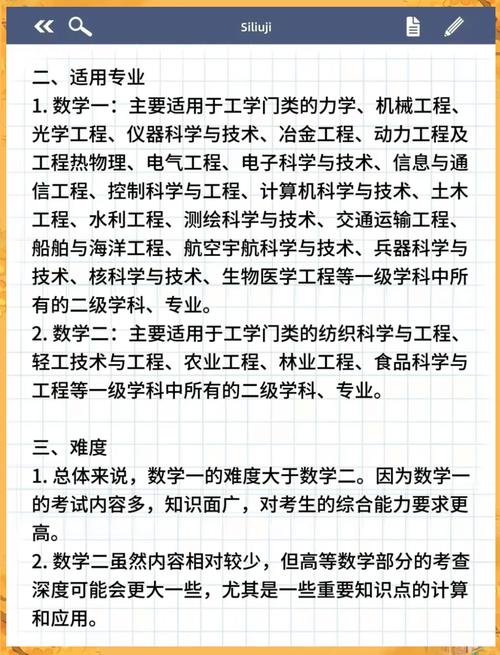 Siliuji
二、适用专业
1. 数学一：主要适用于工学门类的力学、机械工程、
光学工程、仪器科学与技术、冶金工程、动力工程及
工程热物理、电气工程、电子科学与技术、信息与通
信工程、控制科学与工程、计算机科学与技术、土木
工程、水利工程、测绘科学与技术、交通运输工程、
船舶与海洋工程、航空宇航科学与技术、兵器科学与
技术、核科学与技术、生物医学工程等一级学科中所
有的二级学科、专业。
2. 数学二：主要适用于工学门类的纺织科学与工程、
轻工技术与工程、农业工程、林业工程、食品科学与
工程等一级学科中所有的二级学科、专业。
三、难度
1. 总体来说，数学一的难度大于数学二。因为数学一
的考试内容多，知识面广，对考生的综合能力要求更
高。
2. 数学二虽然内容相对较少，但高等数学部分的考查
深度可能会更大一些，尤其是一些重要知识点的计算
和应用。